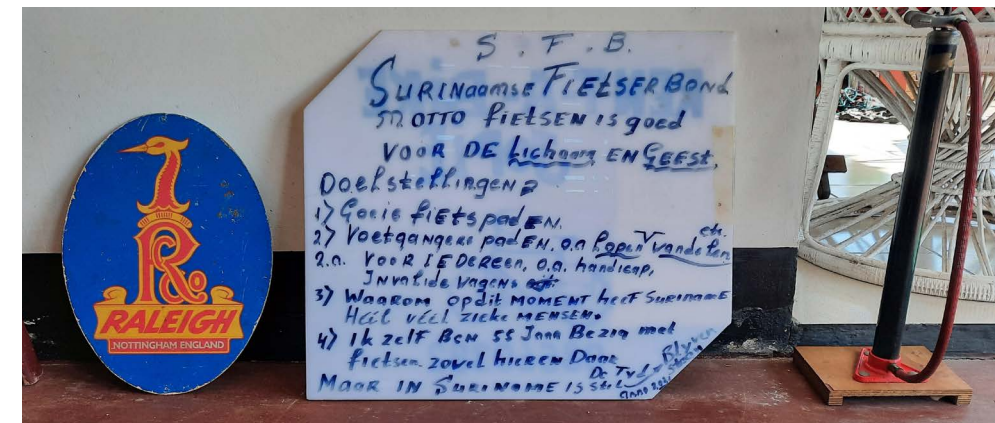 R
RALEIGH
NOTTINGHAM ENGLAND
S. F. B.
SURINaamsE FIETSER BOND
MOTTO fiETSEN IS goed
VOOR DE Lichaam EN GEEST.
Doelstellingen
1) Goeie fietspadEN.
2) Voetgangers padEN. o.a lopen wandelen etc.
2.a. VooR IEDEREEN, o.a. handicap,
INvalide wagens
3) Waarom opdit MOMENT heeF SURINAME
Heel véél ziekE MENSEN.
4) Ik zelf BEN 55 Jaar Bezig met
fietsen zovel hier EN Daar
MaaR IN SURINAME IS De Tyd Stil Blyven Staan
anno